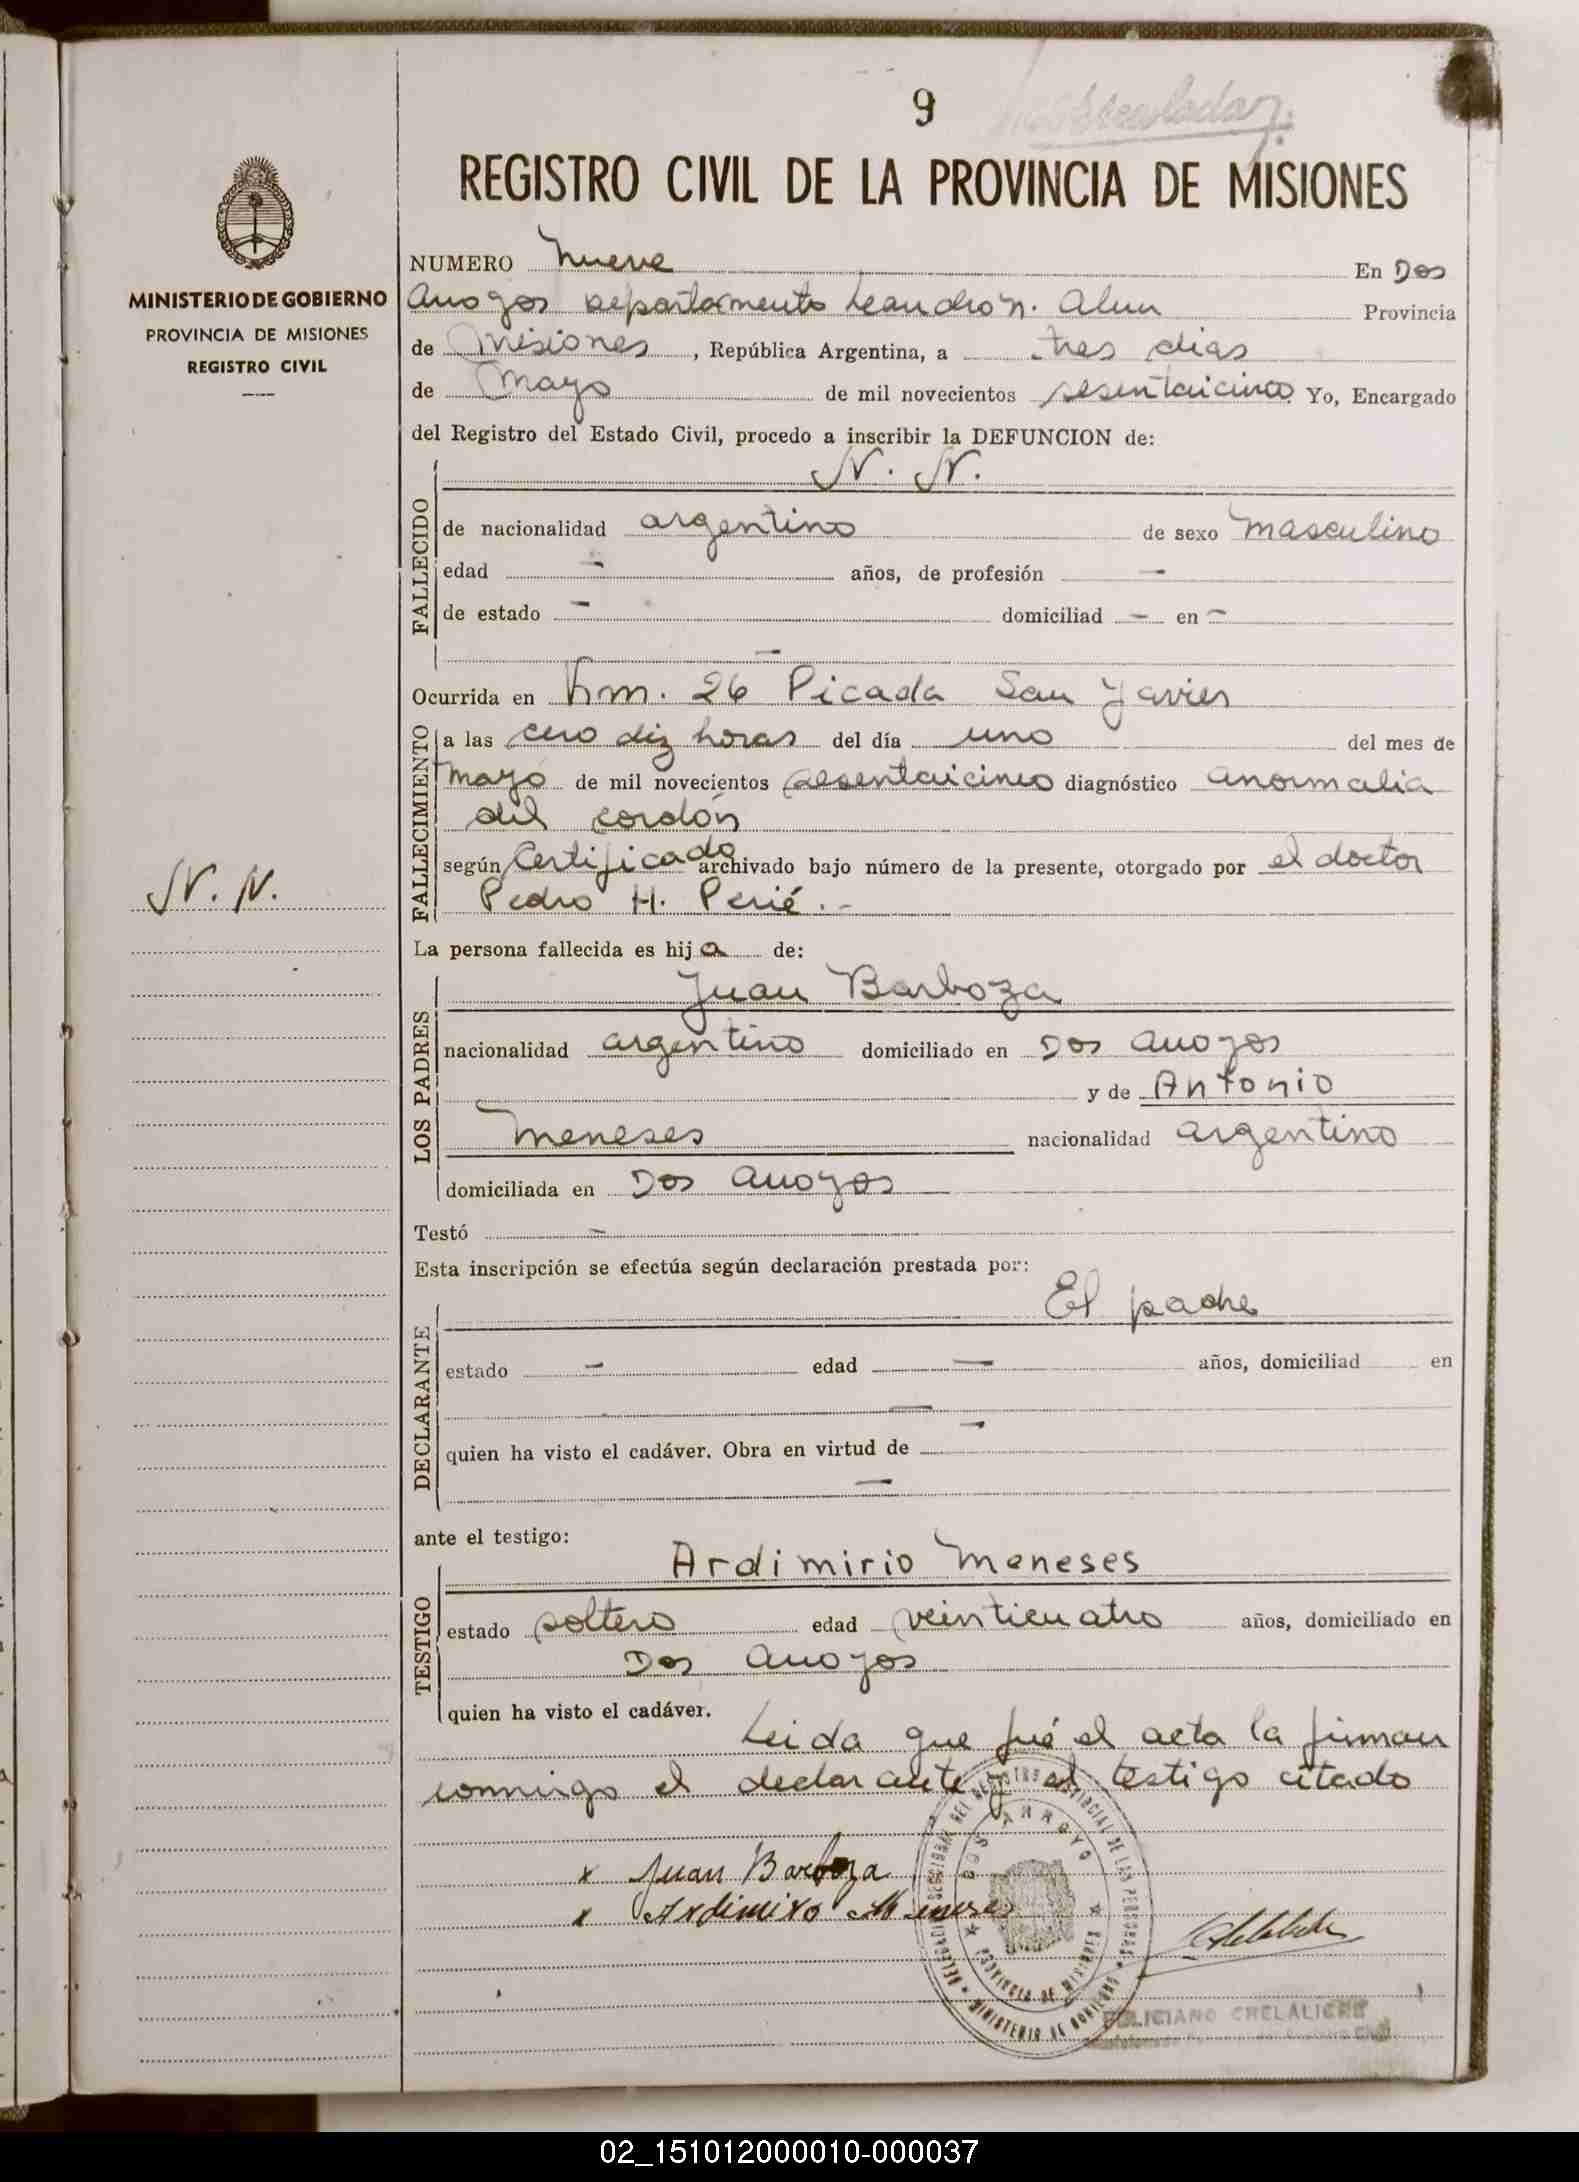 9
REGISTRO CIVIL DE LA PROVINCIA DE MISIONES
MINISTERIO DE GOBIERNO
PROVINCIA DE MISIONES
REGISTRO CIVIL
N. N.
NUMERO nueve En Dos
Arroyos departamento Leandro N. Alem Provincia
de Misiones, República Argentina, a tres dias
de Mayo de mil novecientos sesentaicinco Yo, Encargado
del Registro del Estado Civil, procedo a inscribir la DEFUNCION de:
N. N.
FALLECIDO
de nacionalidad argentino de sexo masculino
edad - años, de profesión -
de estado - domiciliad - en -
-
Ocurrida en Km. 26 Picada San Javier
FALLECIMIENTO
a las cero diz horas del día uno del mes de
mayo de mil novecientos sesentaicinco diagnóstico anormalia
del cordón
según Certificado archivado bajo número de la presente, otorgado por el doctor
Pedro H. Perié.-
La persona fallecida es hij o de:
LOS PADRES
Juan Barboza
nacionalidad argentino domiciliado en Dos Arroyos
y de Antonio
Meneses nacionalidad argentino
domiciliada en Dos Arroyos
Testó -
Esta inscripción se efectúa según declaración prestada por:
DECLARANTE
El padre
estado - edad - años, domiciliad en
-
quien ha visto el cadáver. Obra en virtud de -
-
ante el testigo:
TESTIGO
Ardimirio Meneses
estado soltero edad veinticuatro años, domiciliado en
Dos Arroyos
quien ha visto el cadáver.
Leida que fué el acta la firman
conmigo el declarante y el testigo citado
x Juan Barboza
x Ardimiro Meneses
DELEGACION SECCIONAL DEL REGISTRO PROVINCIAL DE LAS PERSONAS
MINISTERIO DE GOBIERNO
DOS ARROYO
PROVINCIA DE MISIONES
FELICIANO
02_151012000010-000037